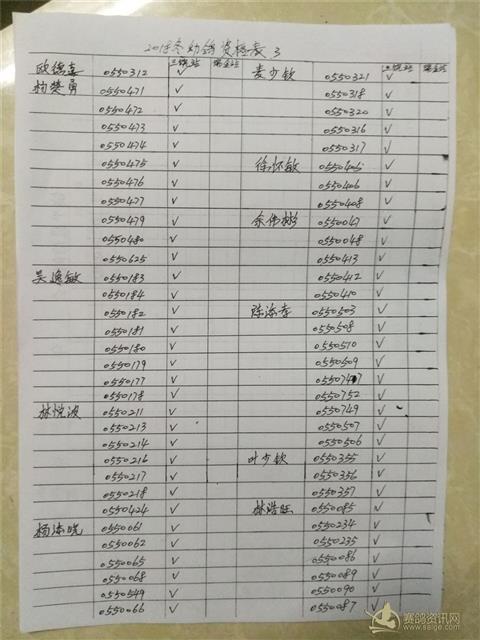 2018冬幼鸽资格表 3
三级站 瑞金站 三级站 瑞金站
欧德嘉 0550312 ✓ 麦少钦 0550321 ✓
杨楚勇 0550471 ✓ 0550318 ✓
0550472 ✓ 0550320 ✓
0550473 ✓ 0550316 ✓
0550474 ✓ 0550317 ✓
0550475 ✓ 徐怀敏 0550405 ✓
0550476 ✓ 0550406 ✓
0550477 ✓ 0550408 ✓
0550479 ✓ 余伟彬 0550047 ✓
0550480 ✓ 0550048 ✓
0550625 ✓ 0550413 ✓
吴逸敏 0550183 ✓ 0550412 ✓
0550184 ✓ 0550410 ✓
0550182 ✓ 陈添孝 0550503 ✓
0550181 ✓ 0550508 ✓
0550180 ✓ 0550510 ✓
0550179 ✓ 0550509 ✓
0550177 ✓ 0550747 ✓
0550178 ✓ 0550752 ✓
林悦波 0550211 ✓ 0550749 ✓
0550213 ✓ 0550507 ✓
0550214 ✓ 0550506 ✓
0550216 ✓ 叶少钦 0550355 ✓
0550217 ✓ 0550356 ✓
0550218 ✓ 0550357 ✓
0550424 ✓ 林浩旺 0550085 ✓
杨添晓 0550061 ✓ 0550234 ✓
0550062 ✓ 0550235 ✓
0550065 ✓ 0550086 ✓
0550068 ✓ 0550089 ✓
0550549 ✓ 0550090 ✓
0550066 ✓ 0550087 ✓
赛鸽资讯网
www.saige.com